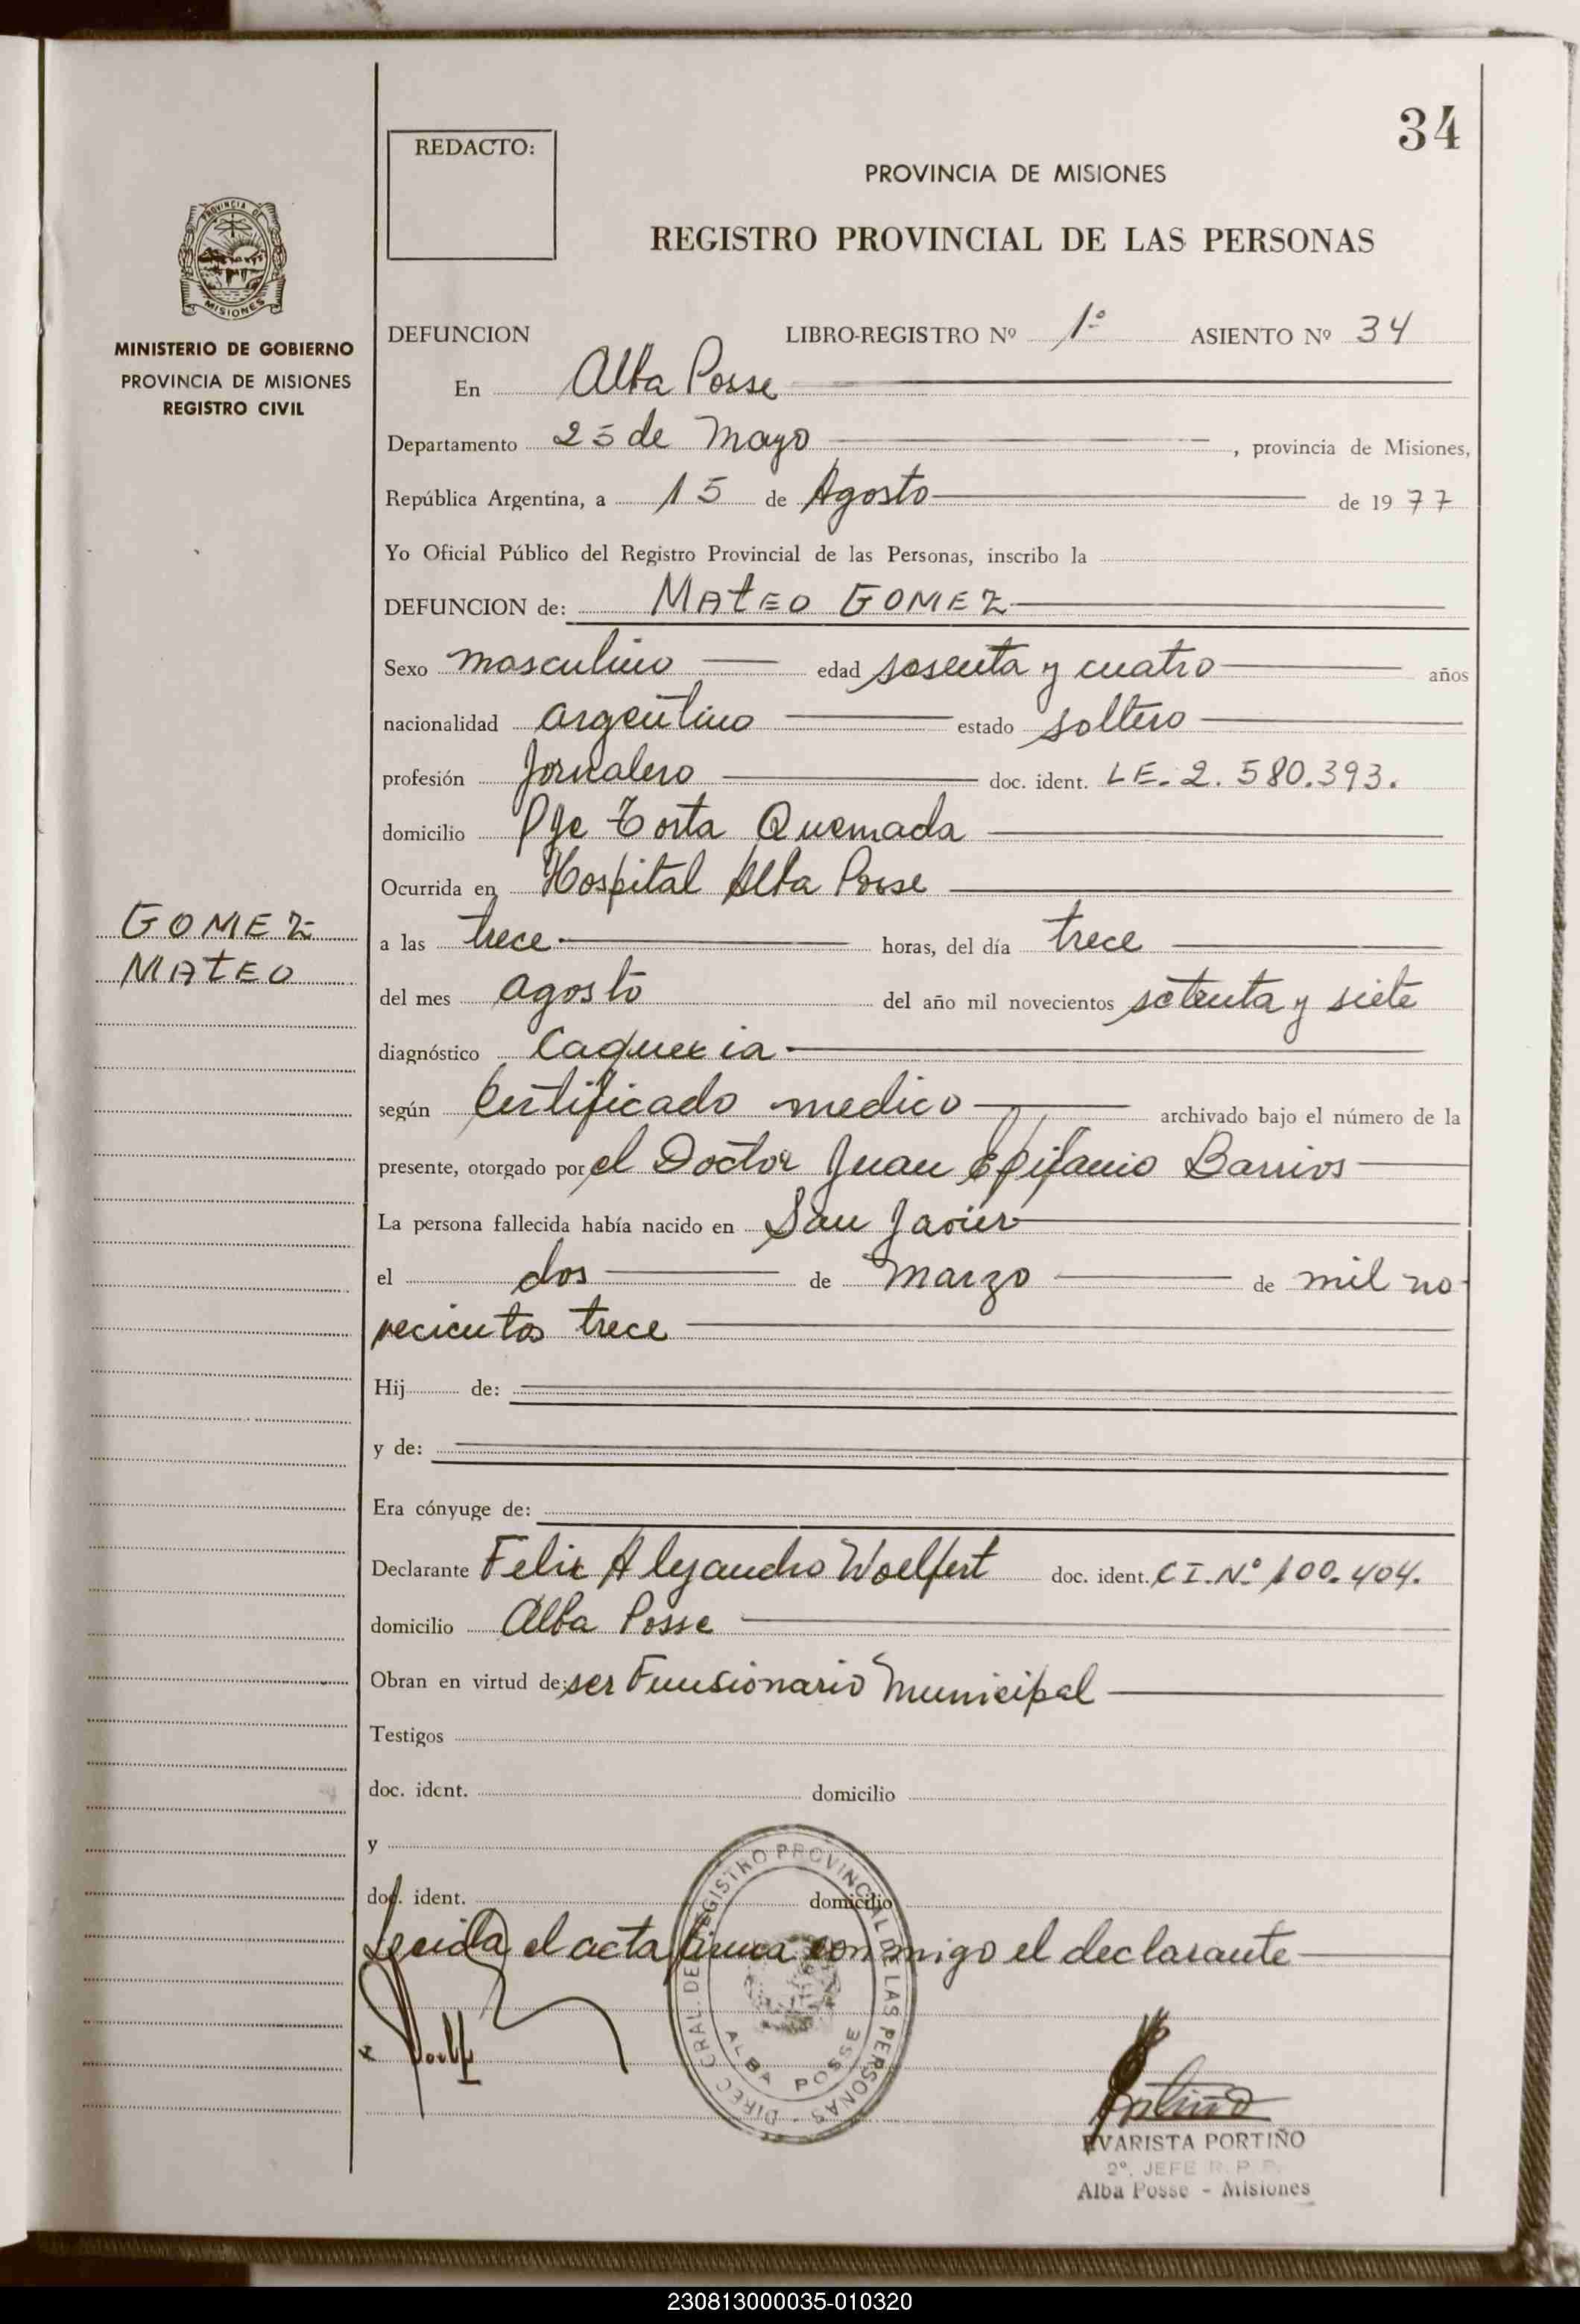 34
REDACTO:
PROVINCIA DE MISIONES
REGISTRO PROVINCIAL DE LAS PERSONAS
PROVINCIA DE
MISIONES
MINISTERIO DE GOBIERNO
PROVINCIA DE MISIONES
REGISTRO CIVIL
DEFUNCION LIBRO-REGISTRO Nº 1º ASIENTO Nº 34
En Alba Posse
Departamento 25 de Mayo, provincia de Misiones,
República Argentina, a 15 de Agosto de 1977
Yo Oficial Público del Registro Provincial de las Personas, inscribo la
DEFUNCION de: MATEO GOMEZ
Sexo masculino edad sesenta y cuatro años
nacionalidad argentino estado soltero
profesión Jornalero doc. ident. LE. 2.580.393.
domicilio Pje Torta Quemada
Ocurrida en Hospital Alba Posse
GOMEZ
MATEO
a las trece horas, del día trece
del mes agosto del año mil novecientos setenta y siete
diagnóstico Caquexia
según Certificado medico archivado bajo el número de la
presente, otorgado por el Doctor Juan Epifanio Barrios
La persona fallecida había nacido en San Javier
el dos de marzo de mil no
vecientos trece
Hij de:
y de:
Era cónyuge de:
Declarante Felix Alejandro Woelfert doc. ident. C I. Nº 100.404.
domicilio Alba Posse
Obran en virtud de: ser Funsionario Municipal
Testigos
doc. ident. domicilio
y
doc. ident. domicilio
Leida el acta firma conmigo el declarante
DIREC. GRAL. DE REGISTRO PROVINCIAL DE LAS PERSONAS
ALBA POSSE
EVARISTA PORTIÑO
2º. JEFE R. P. P.
Alba Posse - Misiones
230813000035-010320